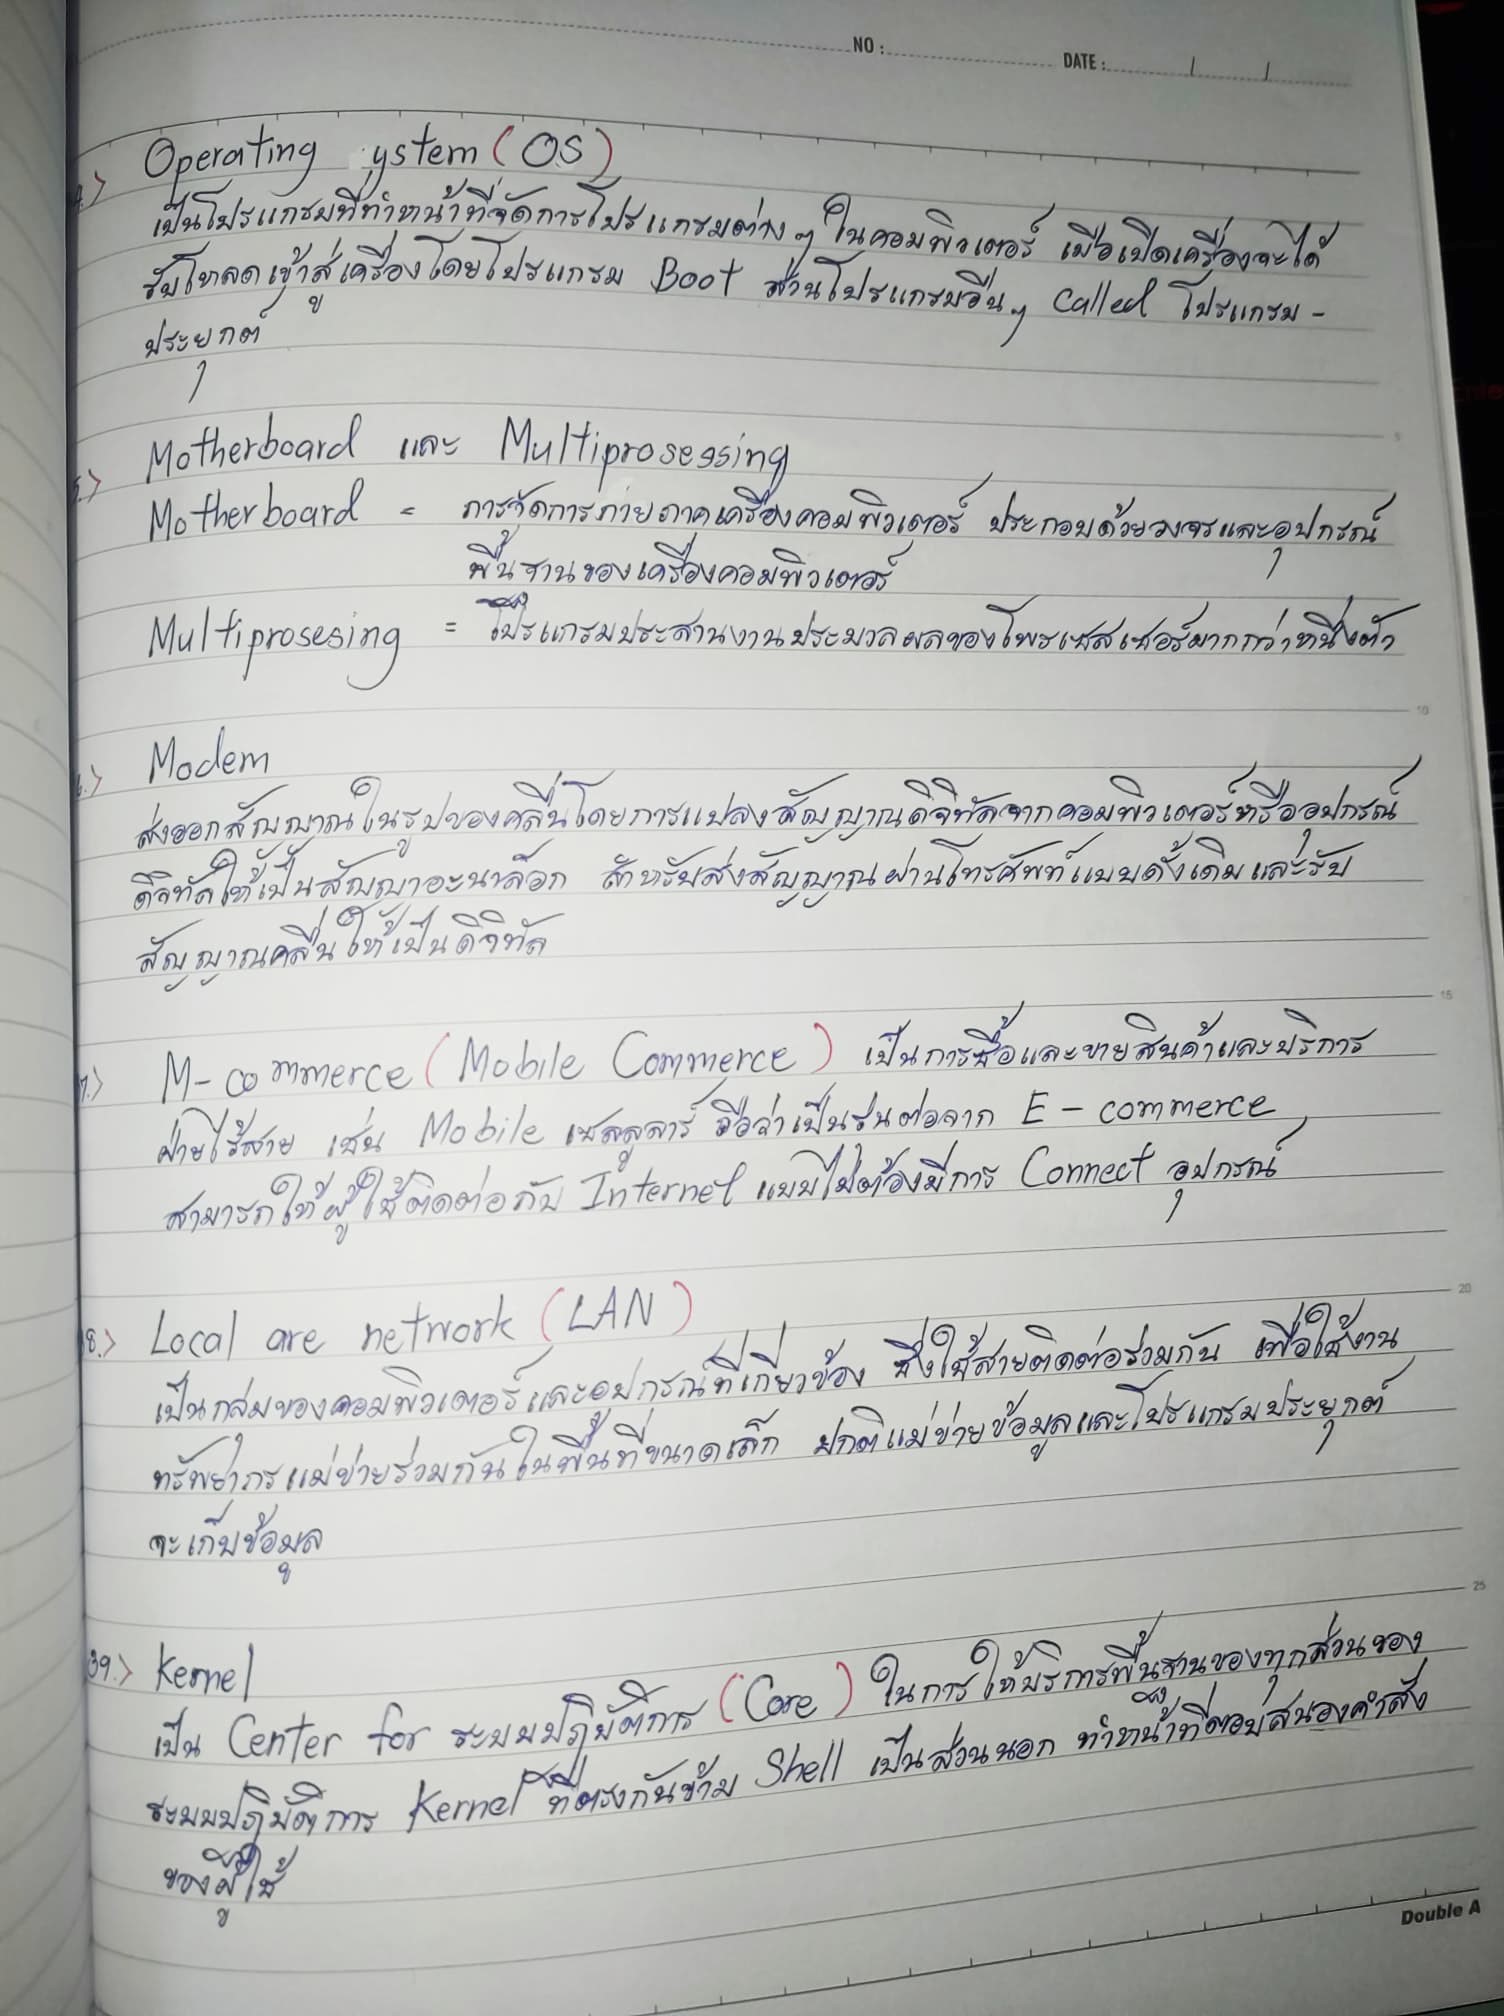 NO : DATE : / /
4.> Operating ystem (OS)
เป็นโปรแกรมที่ทำหน้าที่จัดการโปรแกรมต่างๆ ในคอมพิวเตอร์ เมื่อเปิดเครื่องจะได้
รับโหลดเข้าสู่เครื่องโดยโปรแกรม Boot ส่วนโปรแกรมอื่นๆ called โปรแกรม -
ประยุกต์
5
5.> Motherboard และ Multiprosessing
Motherboard = การจัดการภายภาคเครื่องคอมพิวเตอร์ ประกอบด้วยวงจรและอุปกรณ์
พื้นฐานของเครื่องคอมพิวเตอร์
Multiprosesing = โปรแกรมประสานงานประมวลผลของโพรเซสเซอร์มากกว่าหนึ่งตัว
10
6.> Modem
ส่งออกสัญญาณในรูปของคลื่นโดยการแปลงสัญญาณดิจิทัลจากคอมพิวเตอร์หรืออุปกรณ์
ดิจิทัลให้เป็นสัญญาอะนาล็อก สำหรับส่งสัญญาณผ่านโทรศัพท์แบบดั้งเดิมและรับ
สัญญาณคลื่นให้เป็นดิจิทัล
15
7.> M-commerce (Mobile Commerce) เป็นการซื้อและขายสินค้าและบริการ
ฝ่ายไร้สาย เช่น Mobile เซลลูลาร์ ถือว่าเป็นรุ่นต่อจาก E - commerce
สามารถให้ผู้ใช้ติดต่อกับ Internet แบบไม่ต้องมีการ Connect อุปกรณ์
20
8.> Local are network (LAN)
เป็นกลุ่มของคอมพิวเตอร์และอุปกรณ์ที่เกี่ยวข้อง ซึ่งใช้สายติดต่อร่วมกัน เพื่อใช้งาน
ทรัพยากรแม่ข่ายร่วมกันในพื้นที่ขนาดเล็ก ปกติแม่ข่ายข้อมูลและโปรแกรมประยุกต์
จะเก็บข้อมูล
25
39.> Kernel
เป็น Center for ระบบปฏิบัติการ (Core) ในการให้บริการพื้นฐานของทุกส่วนของ
ระบบปฏิบัติการ Kernel ที่ตรงกันข้าม Shell เป็นส่วนนอก ทำหน้าที่ตอบสนองคำสั่ง
ของผู้ใช้
Double A